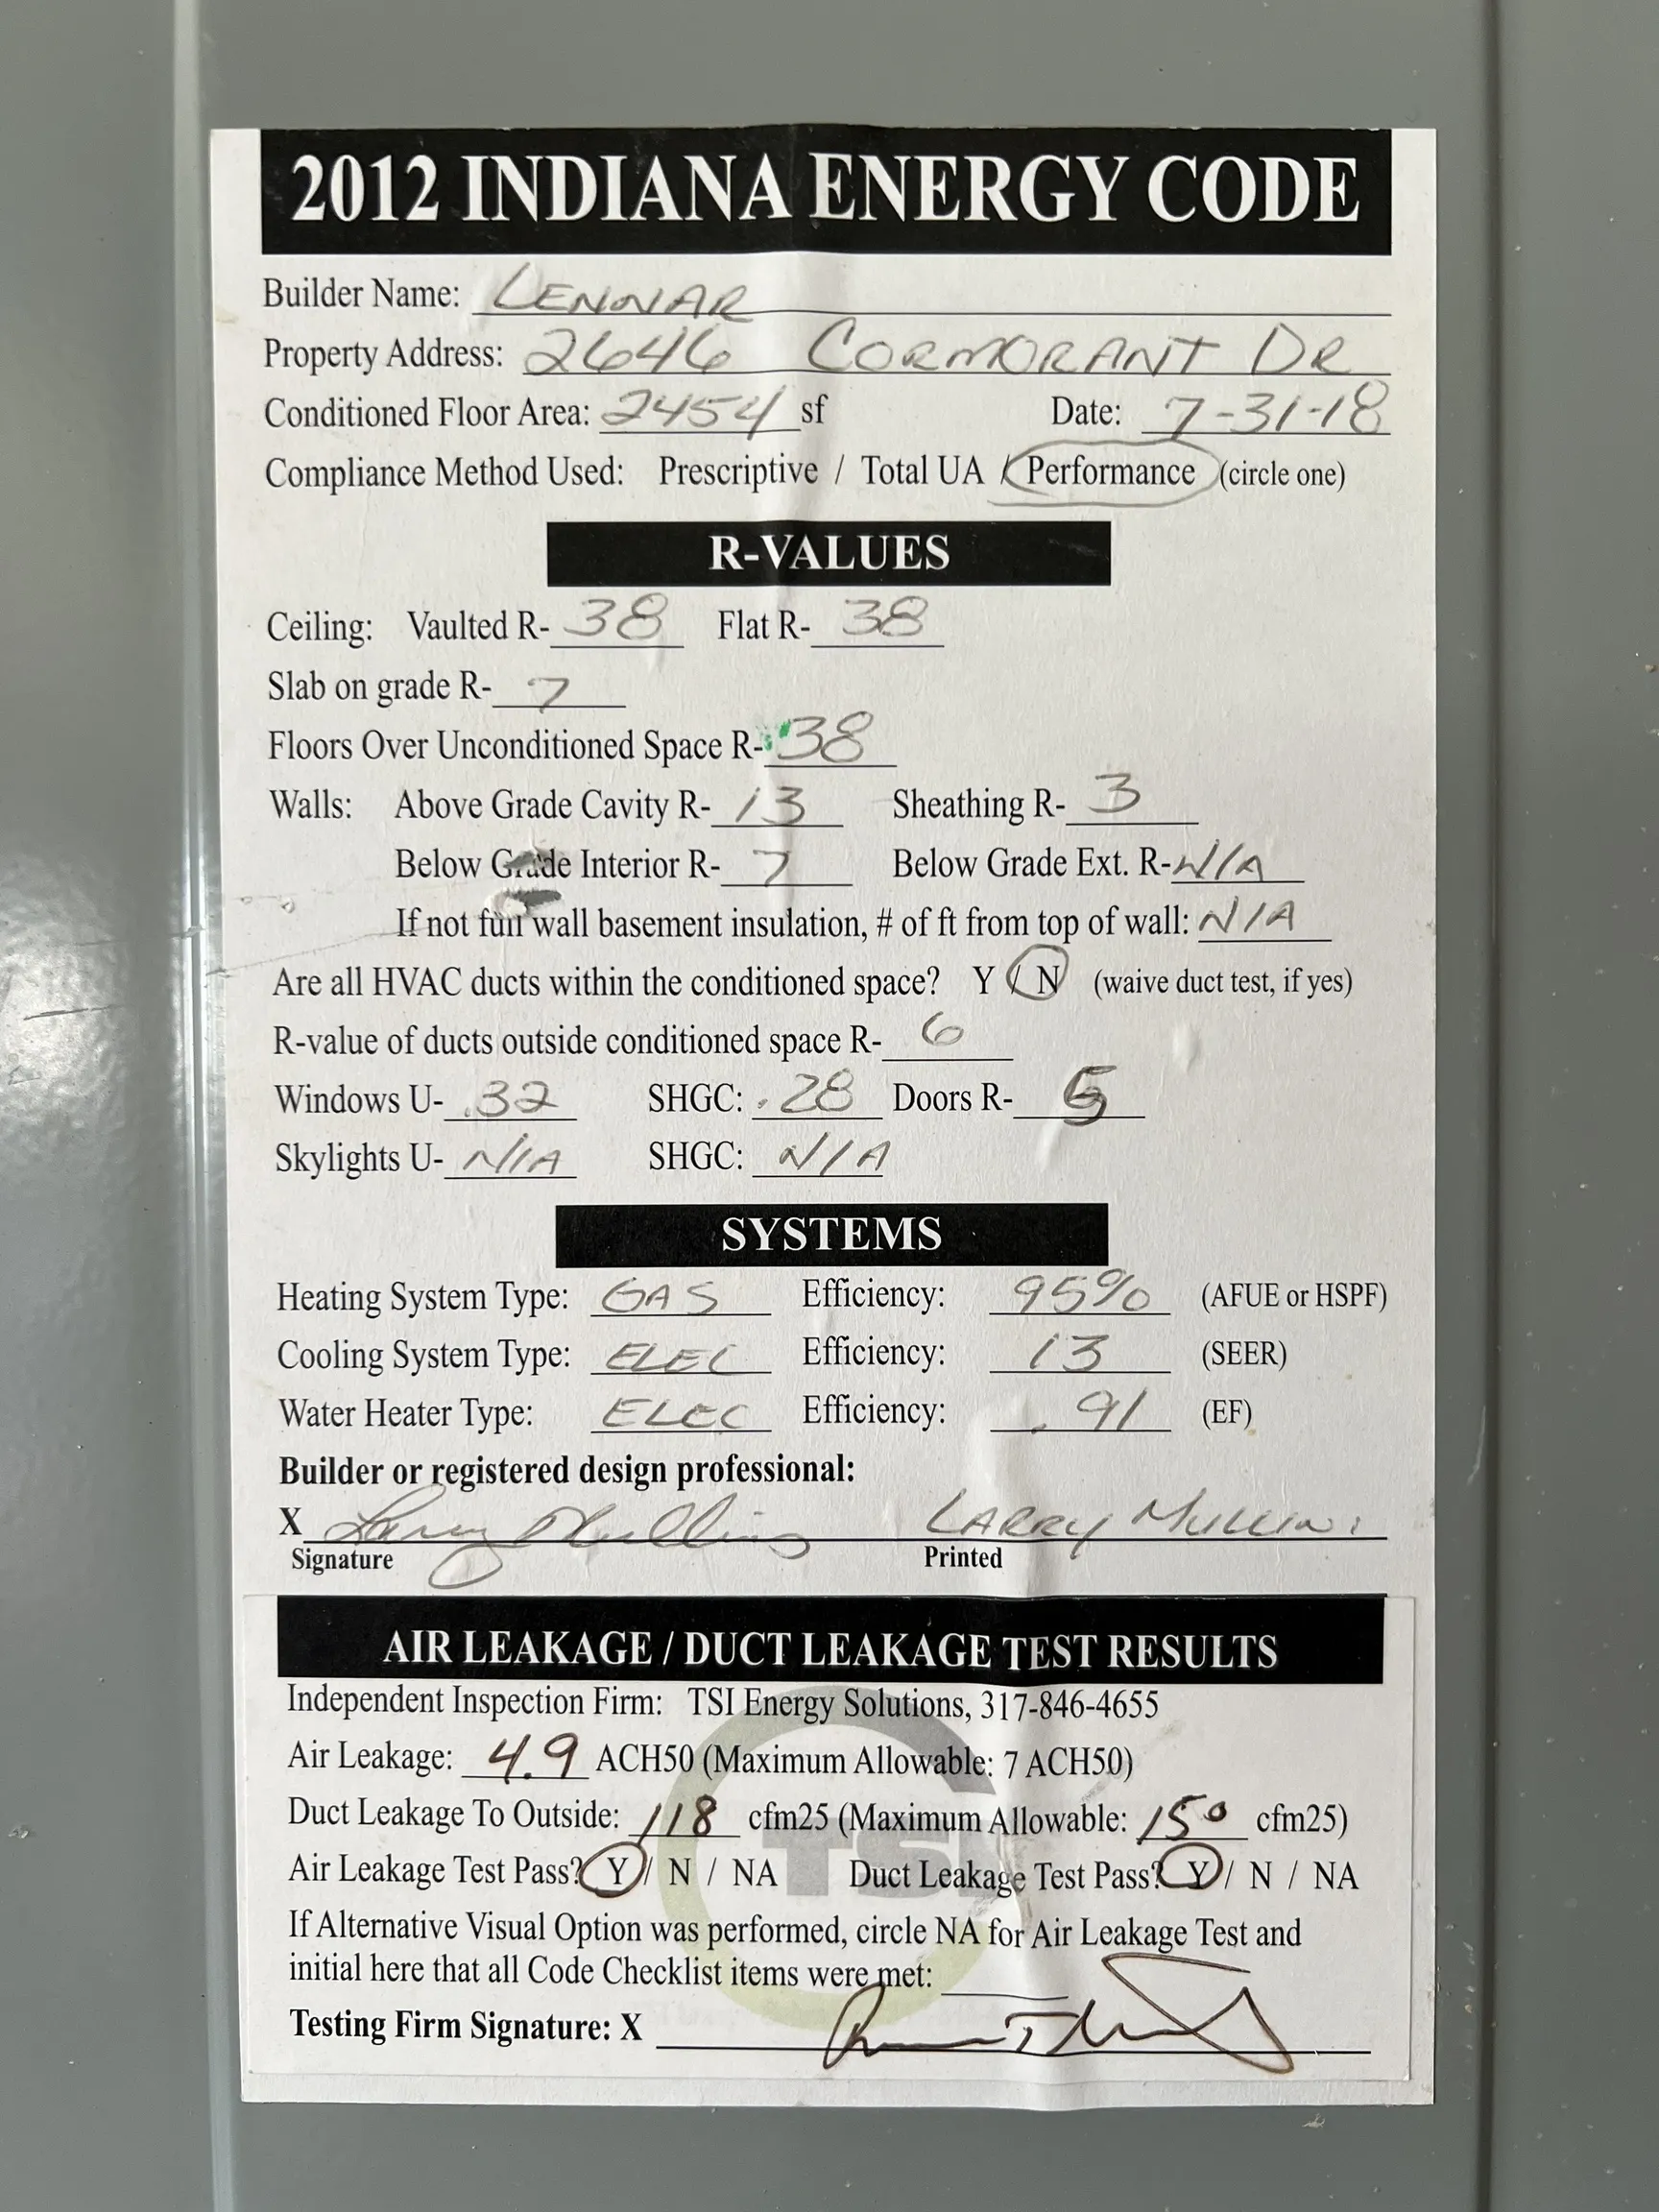 2012 INDIANA ENERGY CODE
Builder Name: LENNAR
Property Address: 2646 CORMORANT DR
Conditioned Floor Area: 2454 sf Date: 7-31-18
Compliance Method Used: Prescriptive / Total UA / Performance (circle one)
R-VALUES
Ceiling: Vaulted R- 38 Flat R- 38
Slab on grade R- 7
Floors Over Unconditioned Space R- 38
Walls: Above Grade Cavity R- 13 Sheathing R- 3
Below Grade Interior R- 7 Below Grade Ext. R- N/A
If not full wall basement insulation, # of ft from top of wall: N/A
Are all HVAC ducts within the conditioned space? Y / N (waive duct test, if yes)
R-value of ducts outside conditioned space R- 6
Windows U- .32 SHGC: .28 Doors R- 5
Skylights U- N/A SHGC: N/A
SYSTEMS
Heating System Type: GAS Efficiency: 95% (AFUE or HSPF)
Cooling System Type: ELEC Efficiency: 13 (SEER)
Water Heater Type: ELEC Efficiency: .91 (EF)
Builder or registered design professional:
X Larry Mullins LARRY MULLINS
Signature Printed
AIR LEAKAGE / DUCT LEAKAGE TEST RESULTS
Independent Inspection Firm: TSI Energy Solutions, 317-846-4655
Air Leakage: 4.9 ACH50 (Maximum Allowable: 7 ACH50)
Duct Leakage To Outside: 118 cfm25 (Maximum Allowable: 150 cfm25)
TSI
Air Leakage Test Pass? Y / N / NA Duct Leakage Test Pass? Y / N / NA
If Alternative Visual Option was performed, circle NA for Air Leakage Test and
initial here that all Code Checklist items were met:
Testing Firm Signature: X